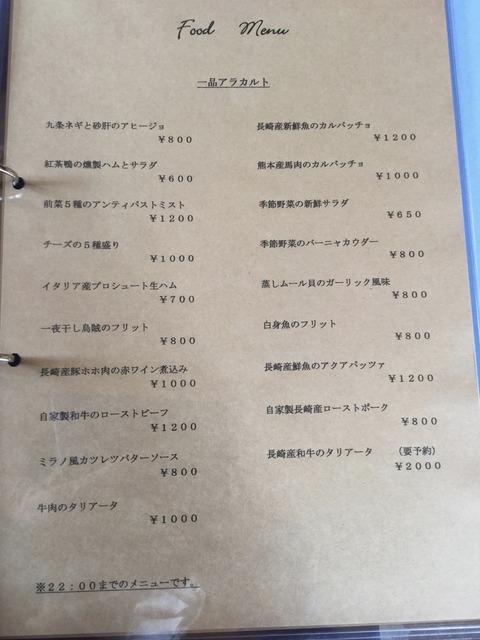 Food Menu
一品アラカルト
九条ネギと砂肝のアヒージョ
¥800
紅茶鴨の燻製ハムとサラダ
¥600
前菜5種のアンティパストミスト
¥1200
チーズの5種盛り
¥1000
イタリア産プロシュート生ハム
¥700
一夜干し烏賊のフリット
¥800
長崎産豚ホホ肉の赤ワイン煮込み
¥1000
自家製和牛のローストビーフ
¥1200
ミラノ風カツレツバターソース
¥800
牛肉のタリアータ
¥1000
長崎産新鮮魚のカルパッチョ
¥1200
熊本産馬肉のカルパッチョ
¥1000
季節野菜の新鮮サラダ
¥650
季節野菜のバーニャカウダー
¥800
蒸しムール貝のガーリック風味
¥800
白身魚のフリット
¥800
長崎産鮮魚のアクアパッツァ
¥1200
自家製長崎産ローストポーク
¥800
長崎産和牛のタリアータ (要予約)
¥2000
※22:00までのメニューです。